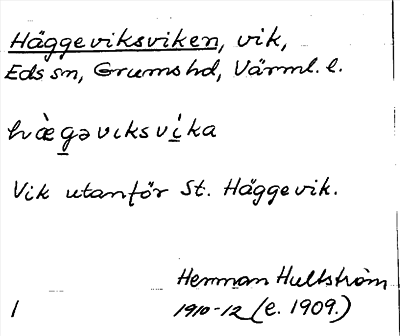 Häggeviksviken, vik,
Eds sn, Grums hd, Värml. l.
hæ̀gəvıksví̱ka
Vik utanför St. Häggevik.
Herman Hultström
1910-12 (e. 1909.)
1